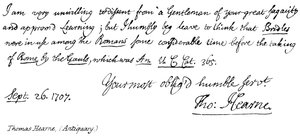 I am very unwilling to dissent from a Gentleman of your great sagacity
and approv'd Learning; but I humbly beg leave to think that
were in use among the Romans some considerable time before the taking
of Rome by the Gauls, which was An. U. C. 365.
Your most oblig'd humble servt
Tho: Hearne.
Sept. 26. 1707.
Thomas Hearne, (Antiquary)